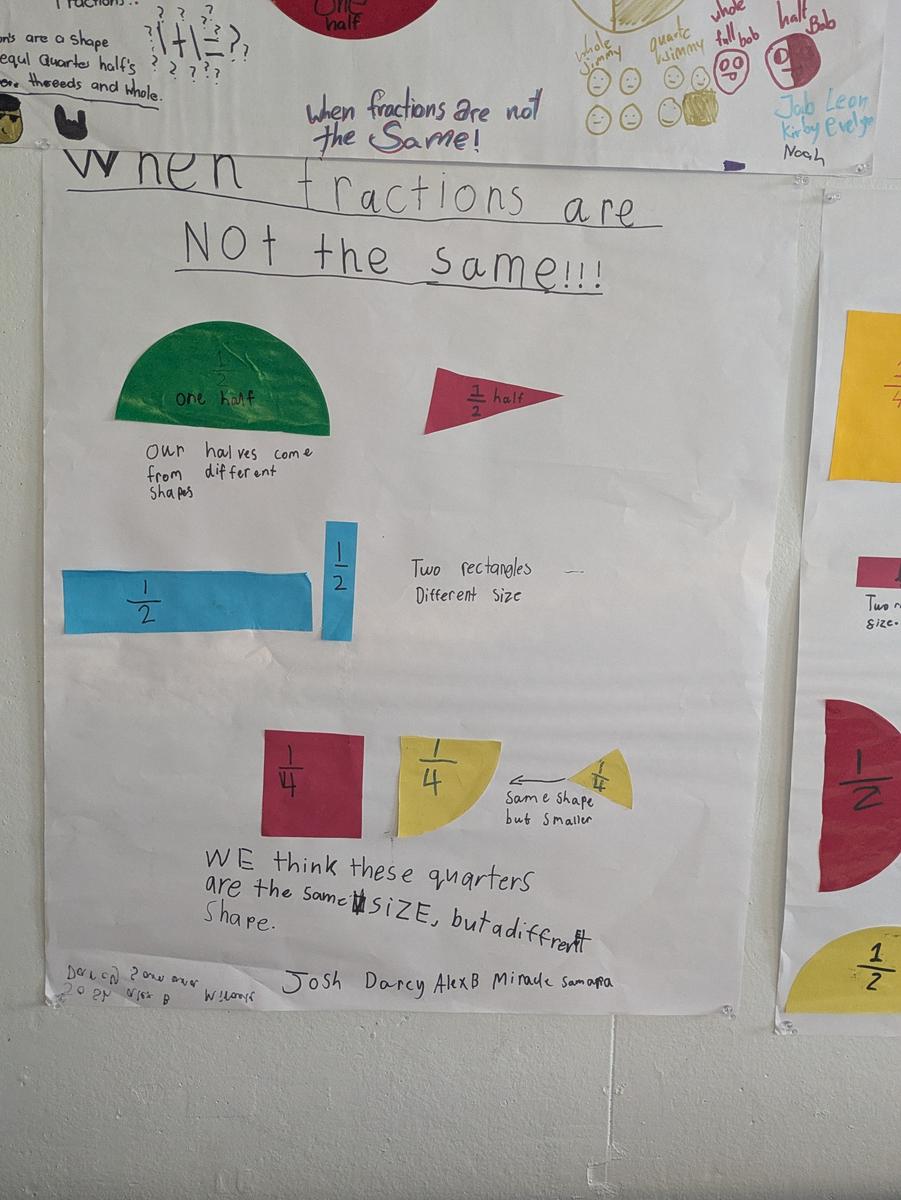 are a shape
equl Quartes half's
threeds and whole.
? ? ?
1+1=??
? ? ? ?
One
half
When fractions are not
the Same!
whole
Jimmy
quarte
Wimmy
whole
full bob
half
Bob
Jab Leon
Kirby Evelyn
Noah
When fractions are
NOt the same!!!
1/2
one half
Our halves come
from different
shapes
1/2 half
1/2
1/2
Two rectangles —
Different size
1/4
1/4
1/4
Same shape
but smaller
WE think these quarters
are the same SiZE, but a diffrent
Shape.
Josh Darcy Alex B Miracle Samara
Two
size.
1/2
1/2